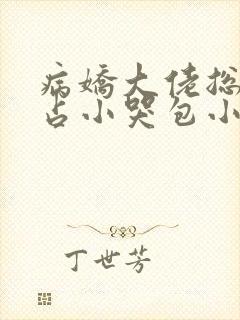 病嬌大佬總
占小哭包小
丁世芳